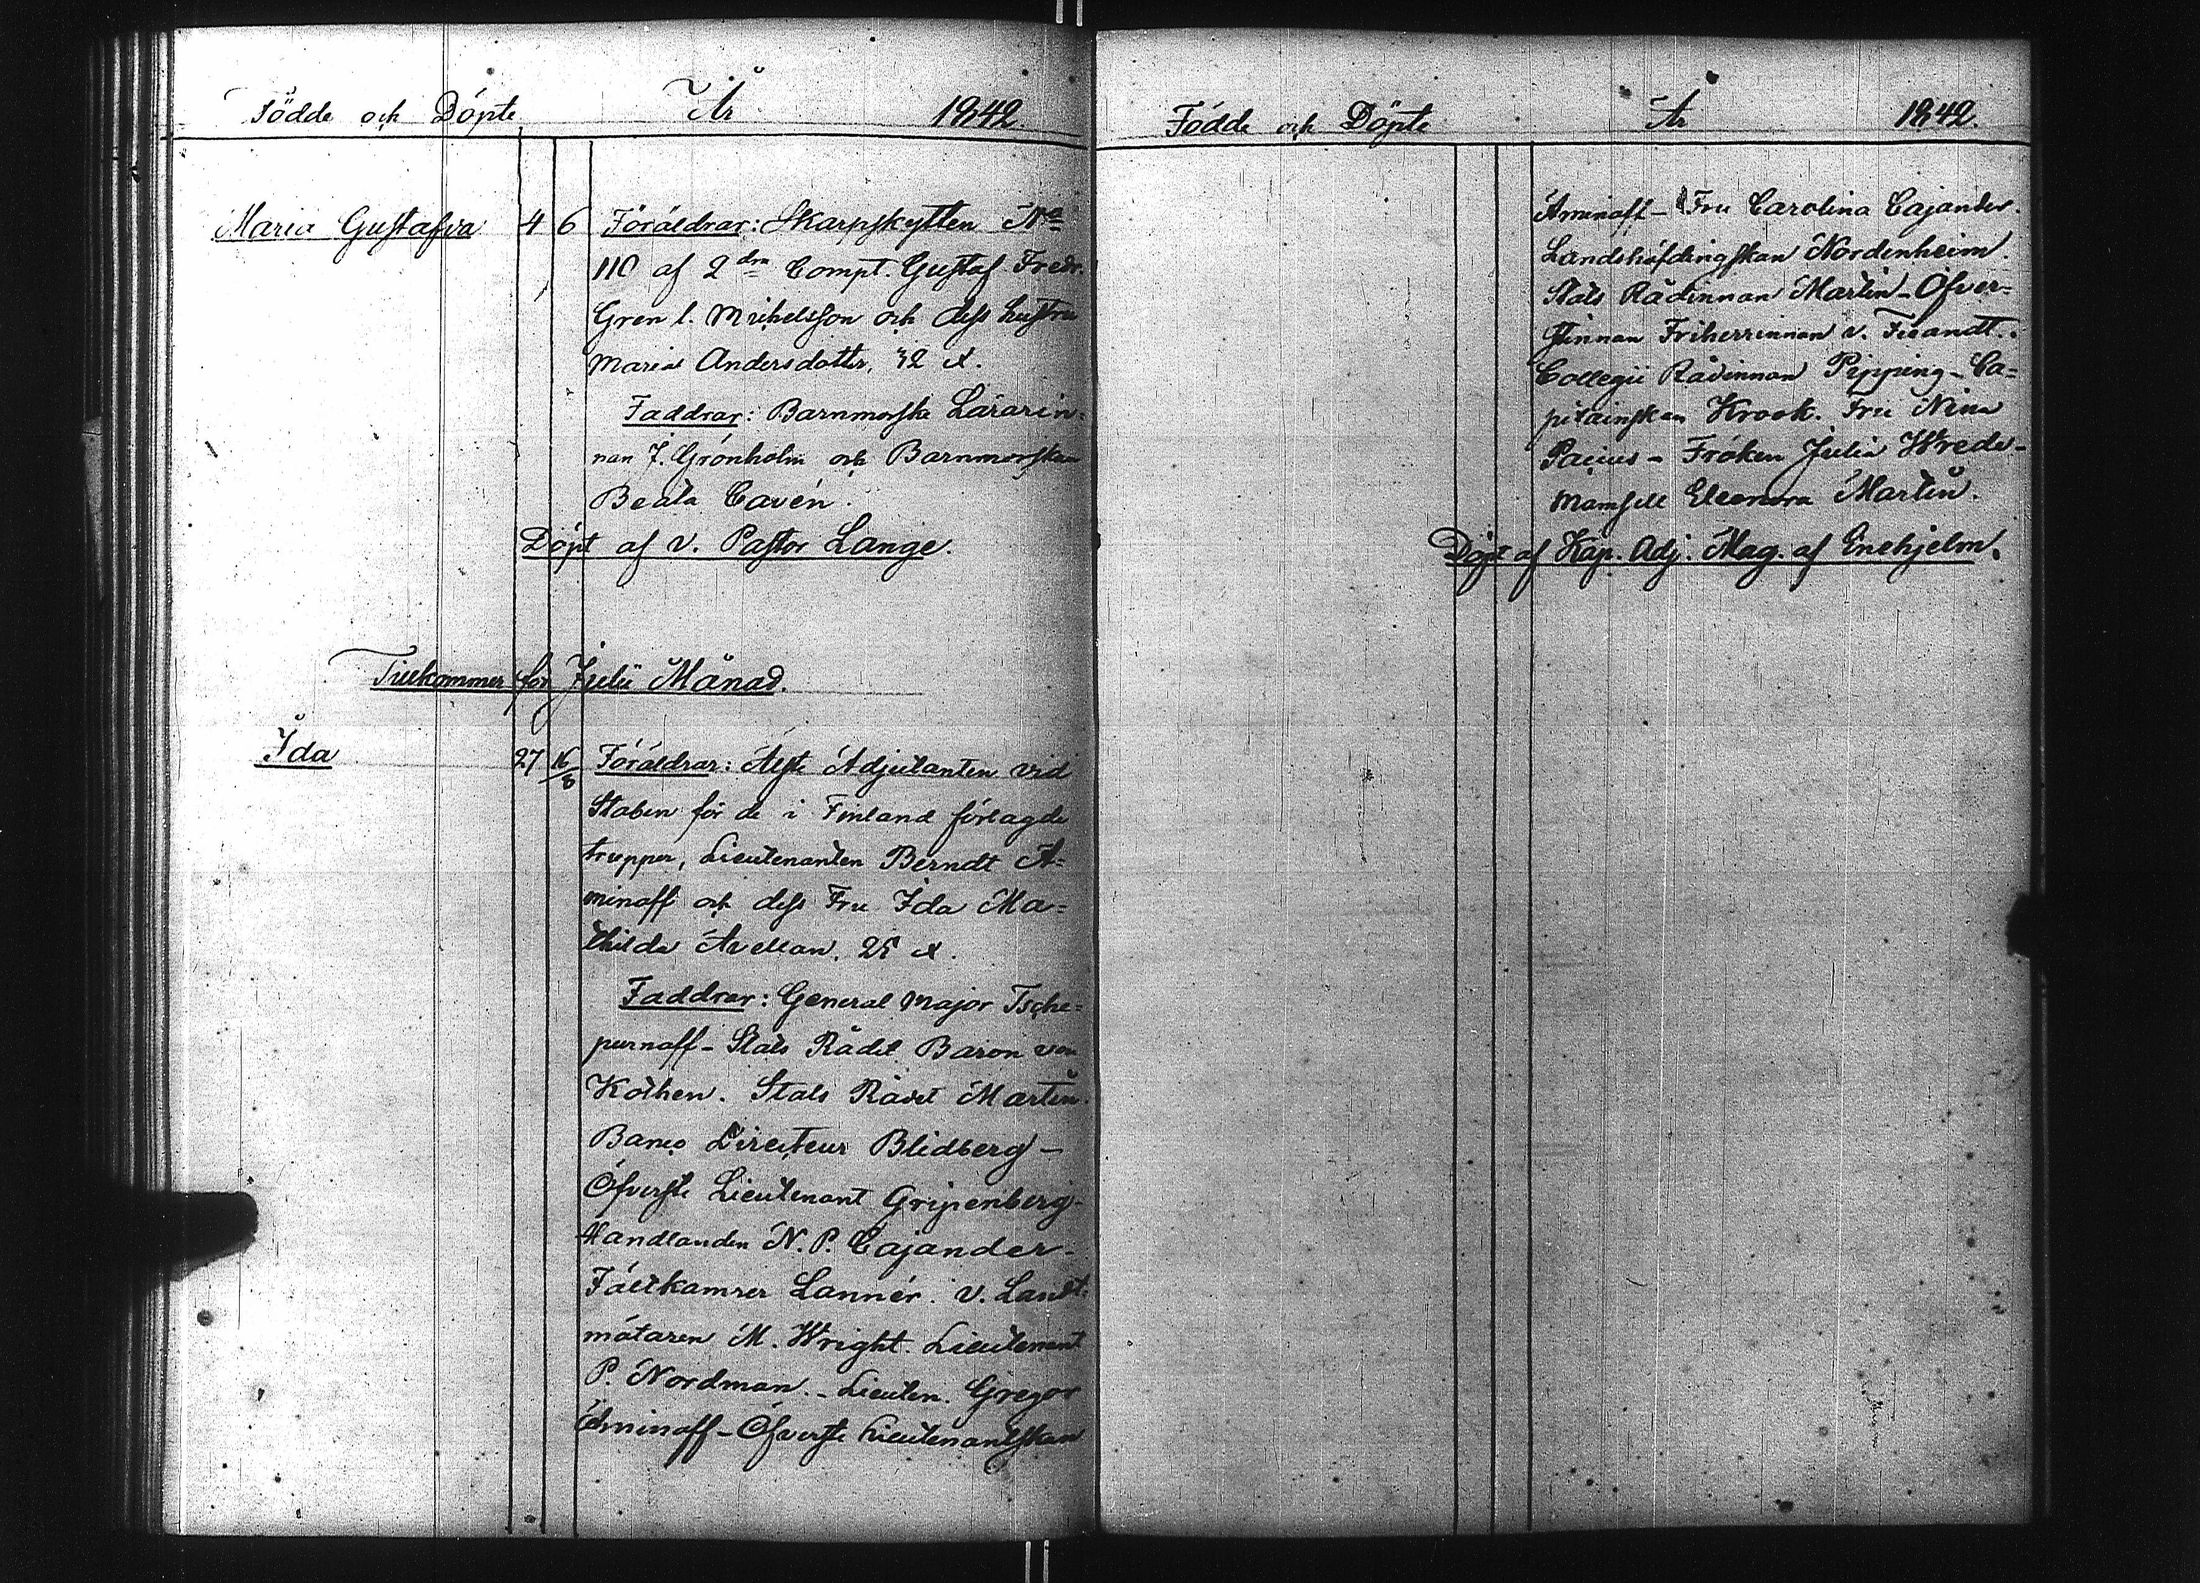 Födde och Döpte År 1842.
Maria Gustafva 4 6 Föräldrar: Skarpskytten No
110 af 2dra Compt. Gustaf Fredr.
Gren l. Michelsson och dess hustru
Maria Andersdotter, 32 år.
Faddrar: Barnmorske Lärarin=
nan J. Grönholm och Barnmorskan
Beata Cavén.
Döpt af v. Pastor Lange.
Tillkommer för Julii Månad.
Ida 27 16/8 Föräldrar: Äldste Adjutanten vid
Staben för de i Finland förlagde
trupper, Lieutenanten Berndt A=
minoff och dess Fru Ida Ma=
thilda Avellan, 25 år.
Faddrar: General Major Tsche=
purnoff - Stats Rådet Baron von
Kothen. Stats Rådet Martin.
Banco Directeur Blidberg -
Öfverste Lieutenant Gripenberg -
Handlanden N. P. Cajander -
Fältkamrer Lannér. v. Landt=
mätaren M. Wright. Lieutenant
P. Nordman. - Lieuten. Gregor
Aminoff - Öfverste Lieutenantskan
Födde och Döpte År 1842.
Aminoff - Fru Carolina Cajander.
Landshöfdingskan Nordenheim.
Stats Rådinnan Martin - Öfver=
stinnan Friherrinnan v.
Collegii Rådinnan Pipping - Ca=
pitainskan Krook. Fru Nina
Pacius - Fröken Julia Wrede -
Mamsell Eleonora Martin.
Döpt af Kap. Adj. Mag. af Enehjelm.